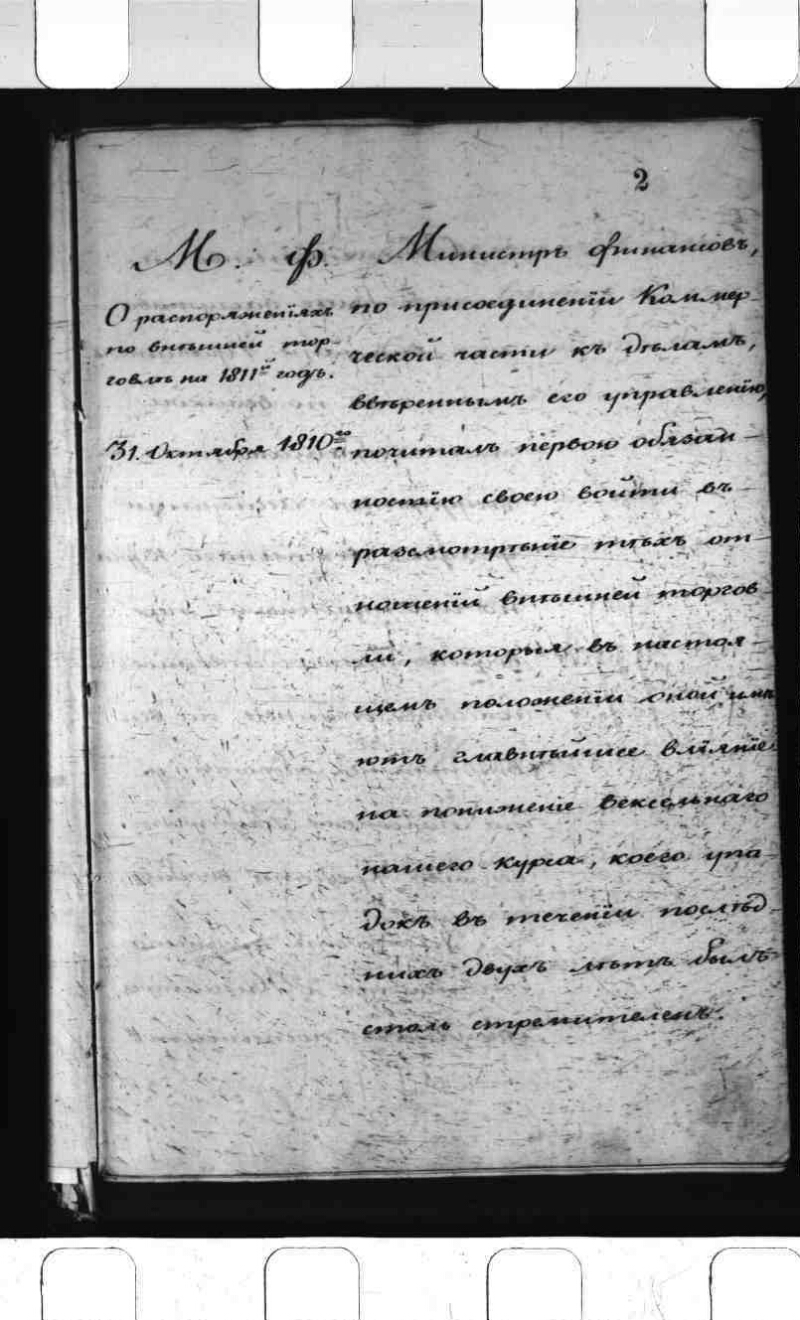 2
М. Ф.
О распоряженїяхъ
по внѣшней тор-
говлѣ на 1811й годъ.
31. Октября 1810го
Министръ финансовъ,
по присоединенїи Коммер-
ческой части къ дѣламъ,
ввѣреннымъ его управленїю,
почиталъ первою обязан-
ностїю своею войти въ
разсмотрѣнїе тѣхъ от-
ношенїй внѣшней торгов-
ли, которыя въ настоя-
щемъ положенїи оной имѣ-
ютъ главнѣйшее влїянїе
на пониженїе вексельнаго
нашего курса, коего упа-
докъ въ теченїи послѣд-
нихъ двухъ лѣтъ былъ
столь стремителенъ.